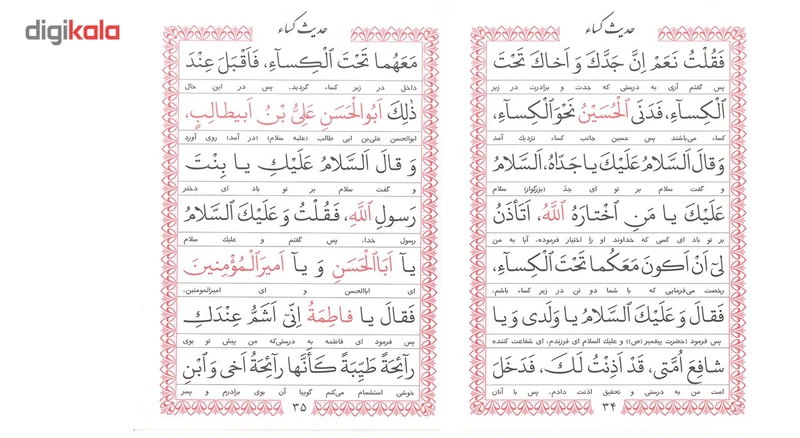 digikala
حدیث کساء
فَقُلْتُ نَعَمْ اِنَّ جَدَّكَ وَ اَخاكَ تَحْتَ
پس گفتم آری به درستی که جدت و برادرت در زیر
الْكِسآءِ، فَدَنَی الْحُسَیْنُ نَحْوَ الْكِسآءِ،
کساء می‌باشند پس حسین جانب کساء نزدیك آمد
وَ قالَ اَلسَّلامُ عَلَیْكَ یا جَدّاهُ، اَلسَّلامُ
و گفت سلام بر تو ای جدّ (بزرگوار) سلام
عَلَیْكَ یا مَنِ اخْتارَهُ اللّٰهُ، اَتَأْذَنُ
بر تو باد ای کسی که خداوند او را اختیار فرموده، آیا به من
لی اَنْ اَكُونَ مَعَكُما تَحْتَ الْكِسآءِ،
رخصت می‌فرمایی که با شما دو تن در زیر کساء باشم،
فَقالَ وَ عَلَیْكَ السَّلامُ یا وَلَدی وَ یا
پس فرمود (حضرت پیغمبر (ص)) و علیك السلام ای فرزندم، ای شفاعت کننده
شافِعَ اُمَّتی، قَدْ اَذِنْتُ لَكَ، فَدَخَلَ
امت من به درستی و تحقیق اذنت دادم، پس با آنان
۳۴
حدیث کساء
مَعَهُما تَحْتَ الْكِسآءِ، فَاَقْبَلَ عِنْدَ
داخل در زیر کساء گردید، پس در این حال
ذٰلِكَ اَبُوالْحَسَنِ عَلِیُّ بْنُ اَبیطالِبٍ،
ابوالحسن علی‌بن ابی طالب (علیه سلام) (در آمد) روی آورد
وَ قالَ اَلسَّلامُ عَلَیْكِ یا بِنْتَ
و گفت سلام بر تو باد ای دختر
رَسولِ اللّٰهِ، فَقُلْتُ وَ عَلَیْكَ السَّلامُ
رسول خدا، پس گفتم و علیك سلام
یآ اَبَاالْحَسَنِ وَ یآ اَمیرَالْمُؤْمِنینَ
ای اباالحسن و ای امیرالمومنین،
فَقالَ یا فاطِمَةُ اِنّی اَشَمُّ عِنْدَكِ
پس فرمود ای فاطمه به درستی‌که من پیش تو بوی
رآئِحَةً طَیِّبَةً كَاَنَّها رآئِحَةُ اَخی وَ ابْنِ
خوشی استشمام می‌کنم گوییا آن بوی برادرم و پسر
۳۵